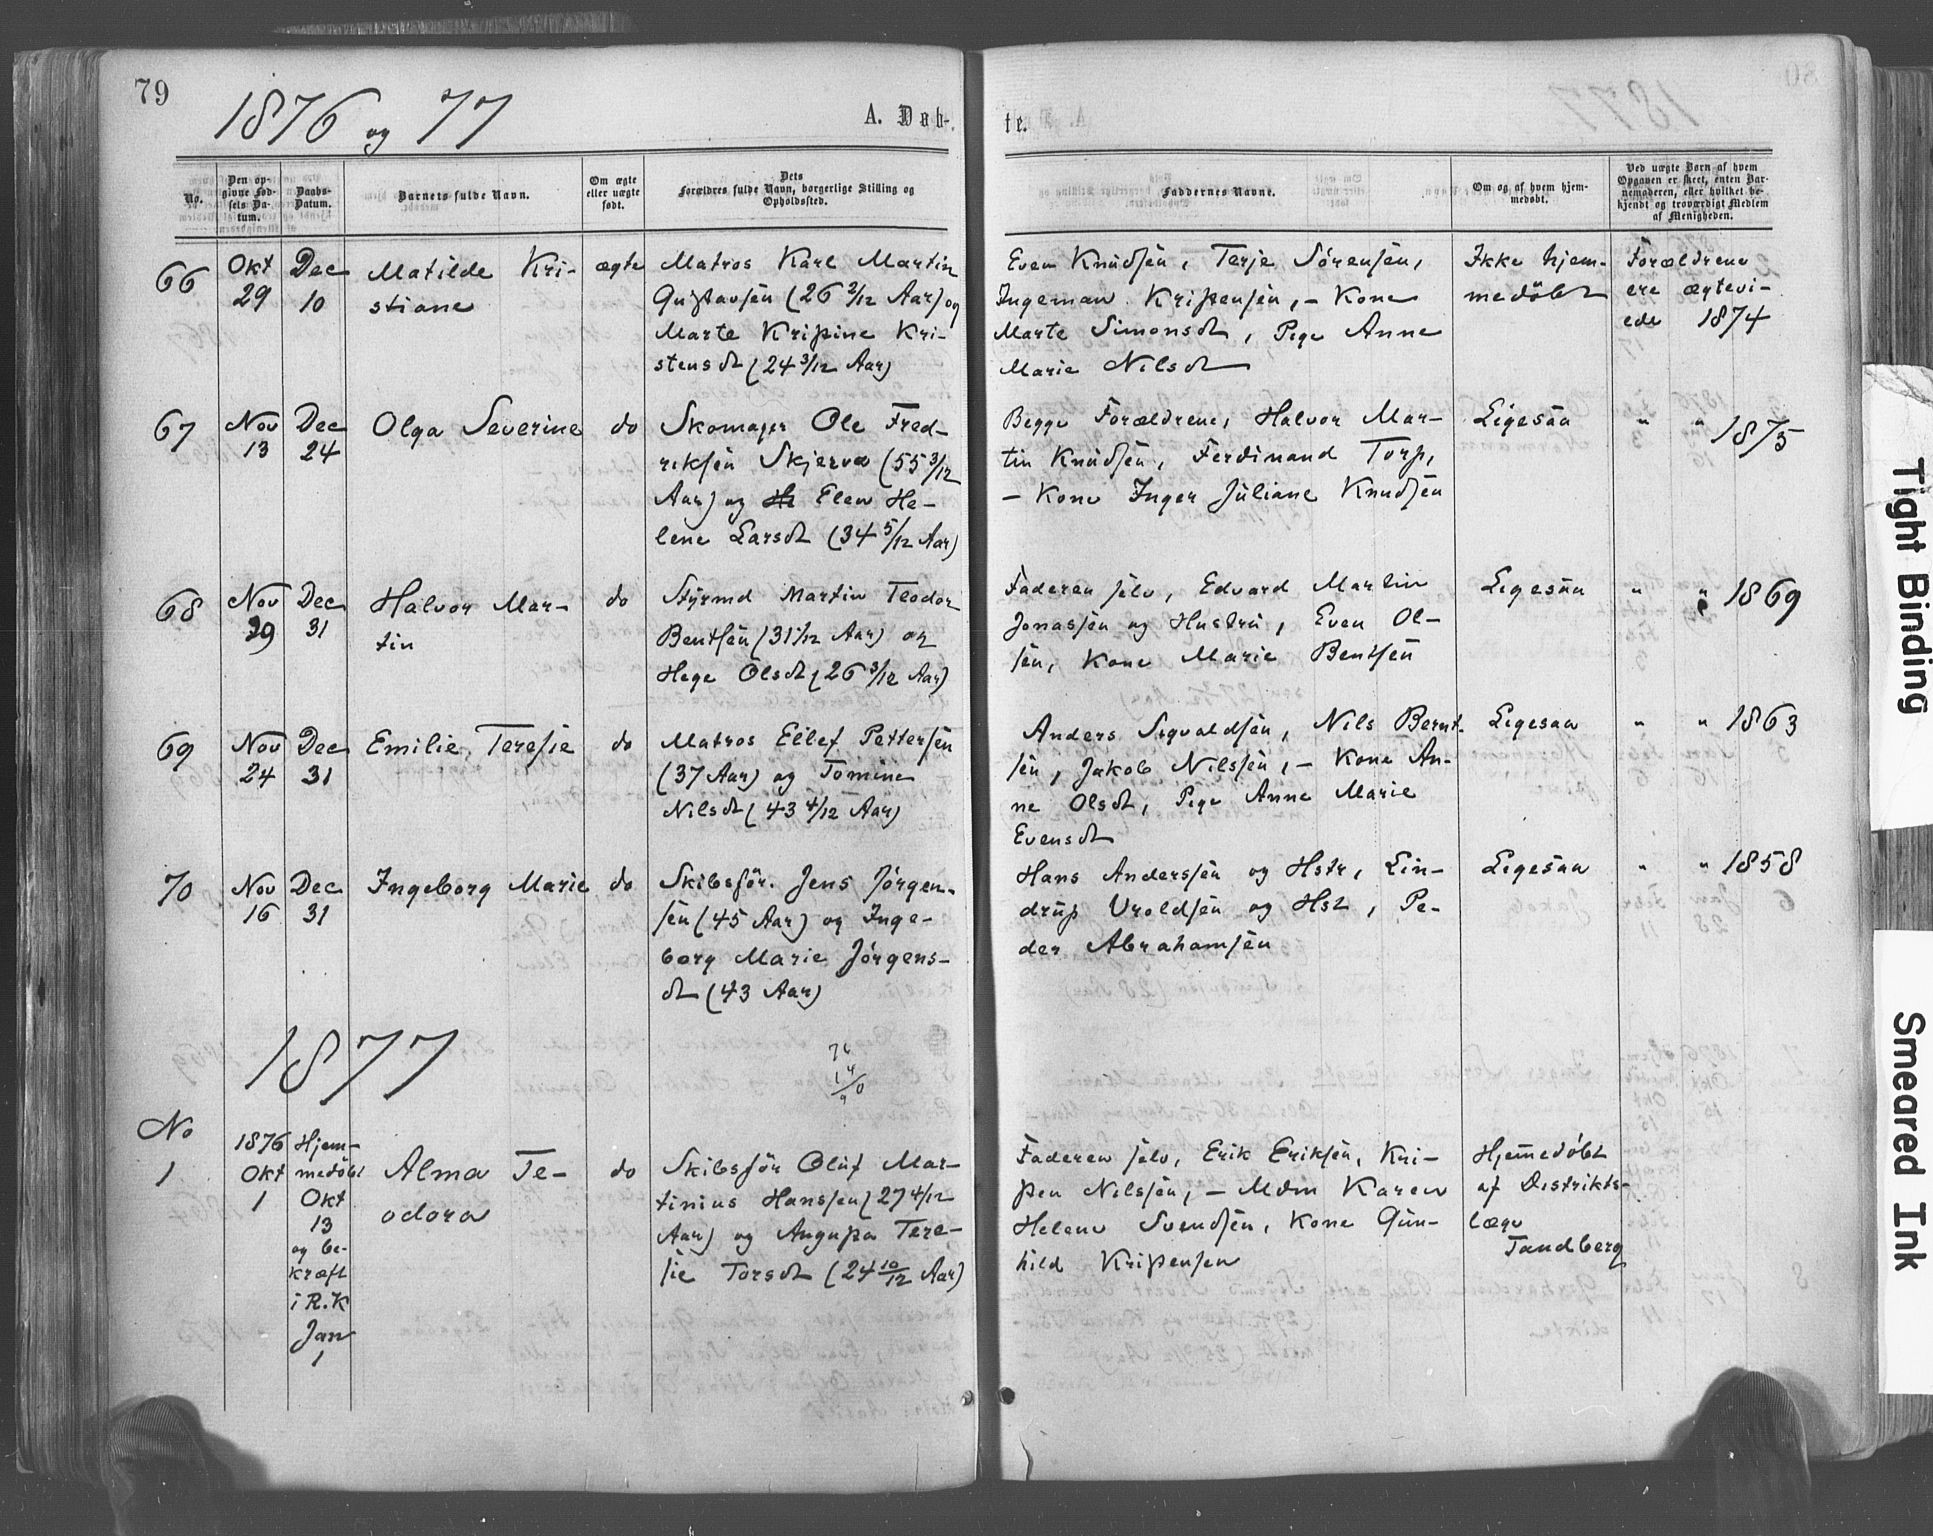 79
1876 og 77
A. Døb-
te.
No.
Den op-
givne Fød-
sels Da-
tum.
Daabs-
Datum.
Barnets fulde Navn.
Om ægte
eller uægte
født.
Dets
Forældres fulde Navn, borgerlige Stilling og
Opholdssted.
Faddernes Navne.
Om og af hvem hjem-
medøbt.
Ved uægte Børn af hvem
Opgaven er skeet, enten Bar-
nemoderen, eller hvilket be-
kjendt og troværdigt Medlem
af Menigheden.
66
Okt
29
Dec
10
Matilde Kri-
stiane
ægte
Matros Karl Martin
Gustavsen (26 2/12 Aar) og
Marte Kristine Kri-
stensdt (24 3/12 Aar)
Even Knudsen, Terje Sørensen,
Ingeman Kristensen, – Kone
Marte Simonsdt, Pige Anne
Marie Nilsdt
Ikke hjem-
medøbt
Forældrene
ere ægtevi-
ede 1874
67
Nov
13
Dec
24
Olga Severine
do
Skomager Ole Fred-
riksen Skjerva (55 3/12
Aar) og Elen He-
lene Larsdt (34 5/12 Aar)
Begge Forældrene, Halvor Mar-
tin Knudsen, Ferdinand Torp,
– Kone Inger Juliane Knudsen
Ligesaa
" " 1875
68
Nov
29
Dec
31
Halvor Mar-
tin
do
Styrmd Martin Teodor
Bentsen (31 1/12 Aar) og
Hege Olsdt (26 3/12 Aar)
Faderen selv, Edvard Martin
Jonassen og Hustru, Even Ol-
sen, Kone Marie Bentsen
Ligesaa
" " 1869
69
Nov
24
Dec
31
Emilie Teresie
do
Matros Ellef Pettersen
(37 Aar) og Tomine
Nilsdt (43 4/12 Aar)
Anders Sigvaldsen, Nils Bernt-
sen, Jakob Nilssen, – Kone An-
ne Olsdt, Pige Anne Marie
Evensdt
Ligesaa
" " 1863
70
Nov
16
Dec
31
Ingeborg Marie
do
Skibsfør. Jens Jørgen-
sen (45 Aar) og Inge-
borg Marie Jørgens-
dt (43 Aar)
Hans Anderssen og Hstr, Lin-
drup Uroldsen og Hst, Pe-
der Abrahamsen
Ligesaa
" " 1858
1877
No
1
1876
Okt
1
Hjem-
medøbt
Okt
13
og be-
kræft
i R.K
Jan
1
Alma Te-
odora
do
Skibsfør Oluf Mar-
tinius Hanssen (27 4/12
Aar) og Augusta Tere-
sie Torsdt (24 10/12 Aar)
Faderen selv, Erik Eriksen, Kri-
sten Nilssen, – Mdm Karen
Helene Svendsen, Kone Gun-
hild Kristensen
Hjemmedøbt
af Distrikts-
læge
Tandberg
Tight Binding
Smeared Ink